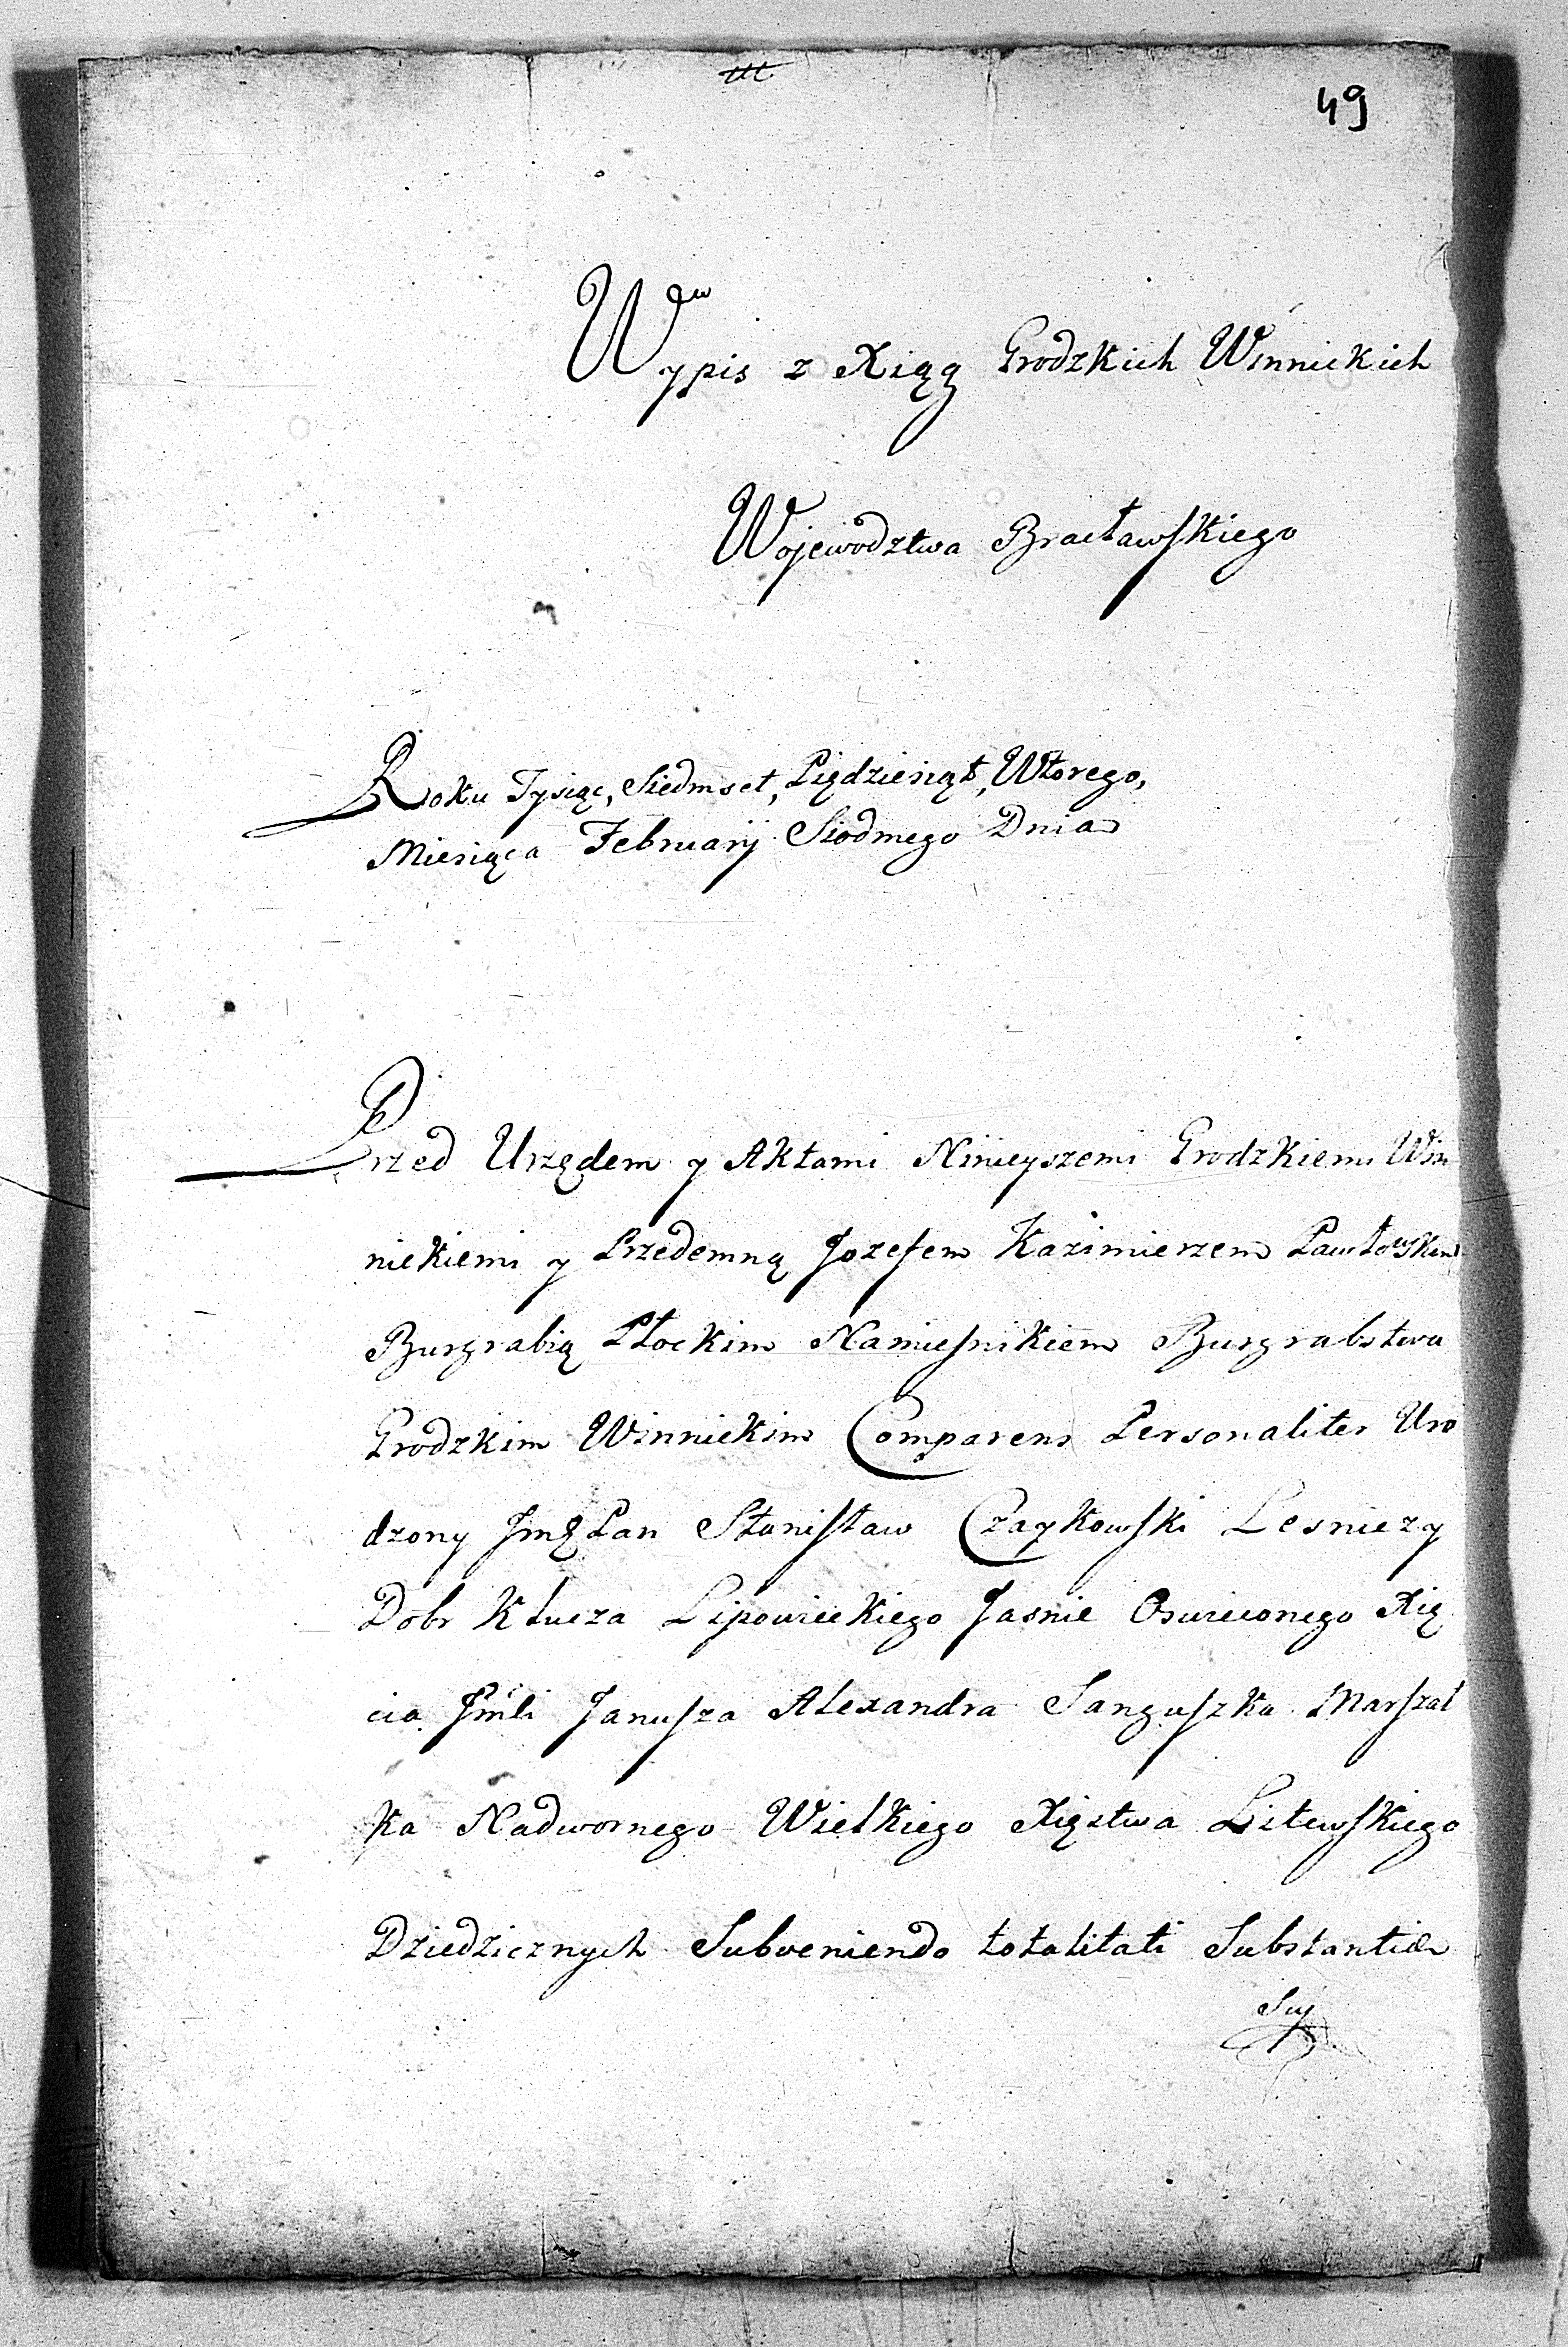 49
Wypis z Xiąg Grodzkich Winnickich
Wojewodztwa Bracławskiego
Roku Tysiąc, Siedmset, Pięđziesiąt, Wtorego,
Miesiąca February Siodmego Dnia
Przed Urzędem y Aktami Ninieyszemi Grodzkiemi Win
nickiemi y Przedemną Jozefem Kazimierzem Pawłowskim
Burgrabią Płockim Namiesnikiem Burgrabstwa
Grodzkim Winnickim Comparens Personaliter Uro
dzony Jmę Pan Stanisław Czaykowski Lesniczy
Dobr Klucza Lipowieckiego Jasnie Oswieconego Xię
cia Jmli Janusza Alexandra Sanguszka Marszał
ka Nadwornego Wielkiego Xięstwa Litewskiego
Dziedzicznych Subveniendo totalitati Substantiæ
Suæ